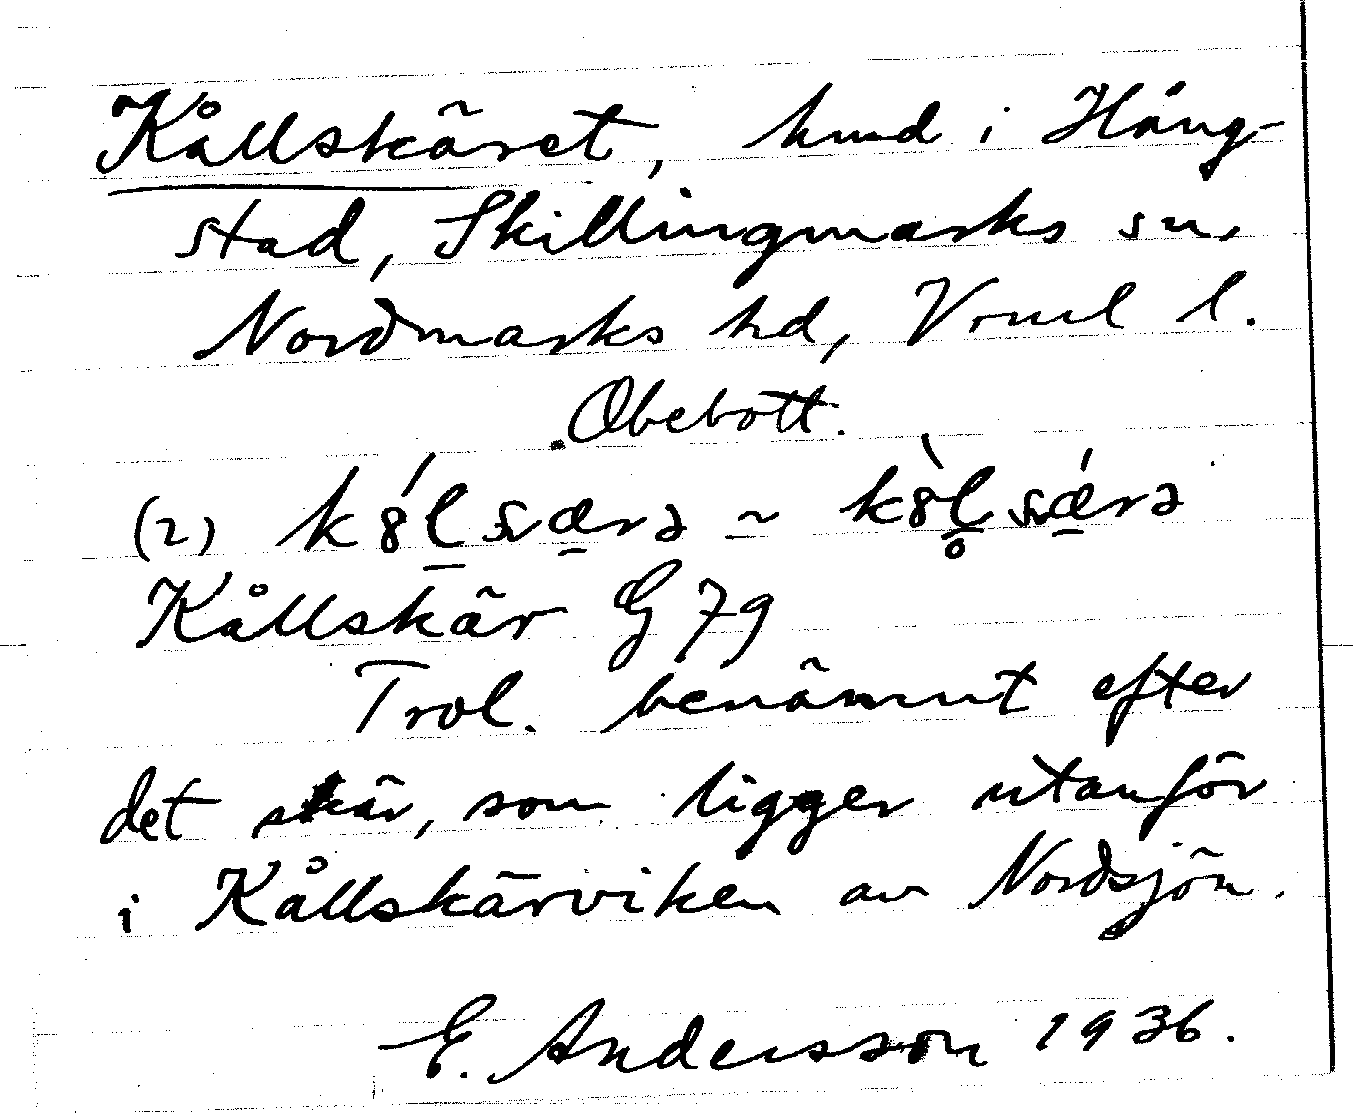 Kållskäret, hmd i Häng-
stad, Skillingmarks sn,
Nordmarks hd, Vrml l.
Obebott.
(2) k8́l̠sæ̠rə ~ k8̀l̥̠sǽ̠rə
Kållskär G 79
Trol. benämnt efter
det skär, som ligger utanför
i Kållskärviken av Nordsjön.
E. Andersson 1936.